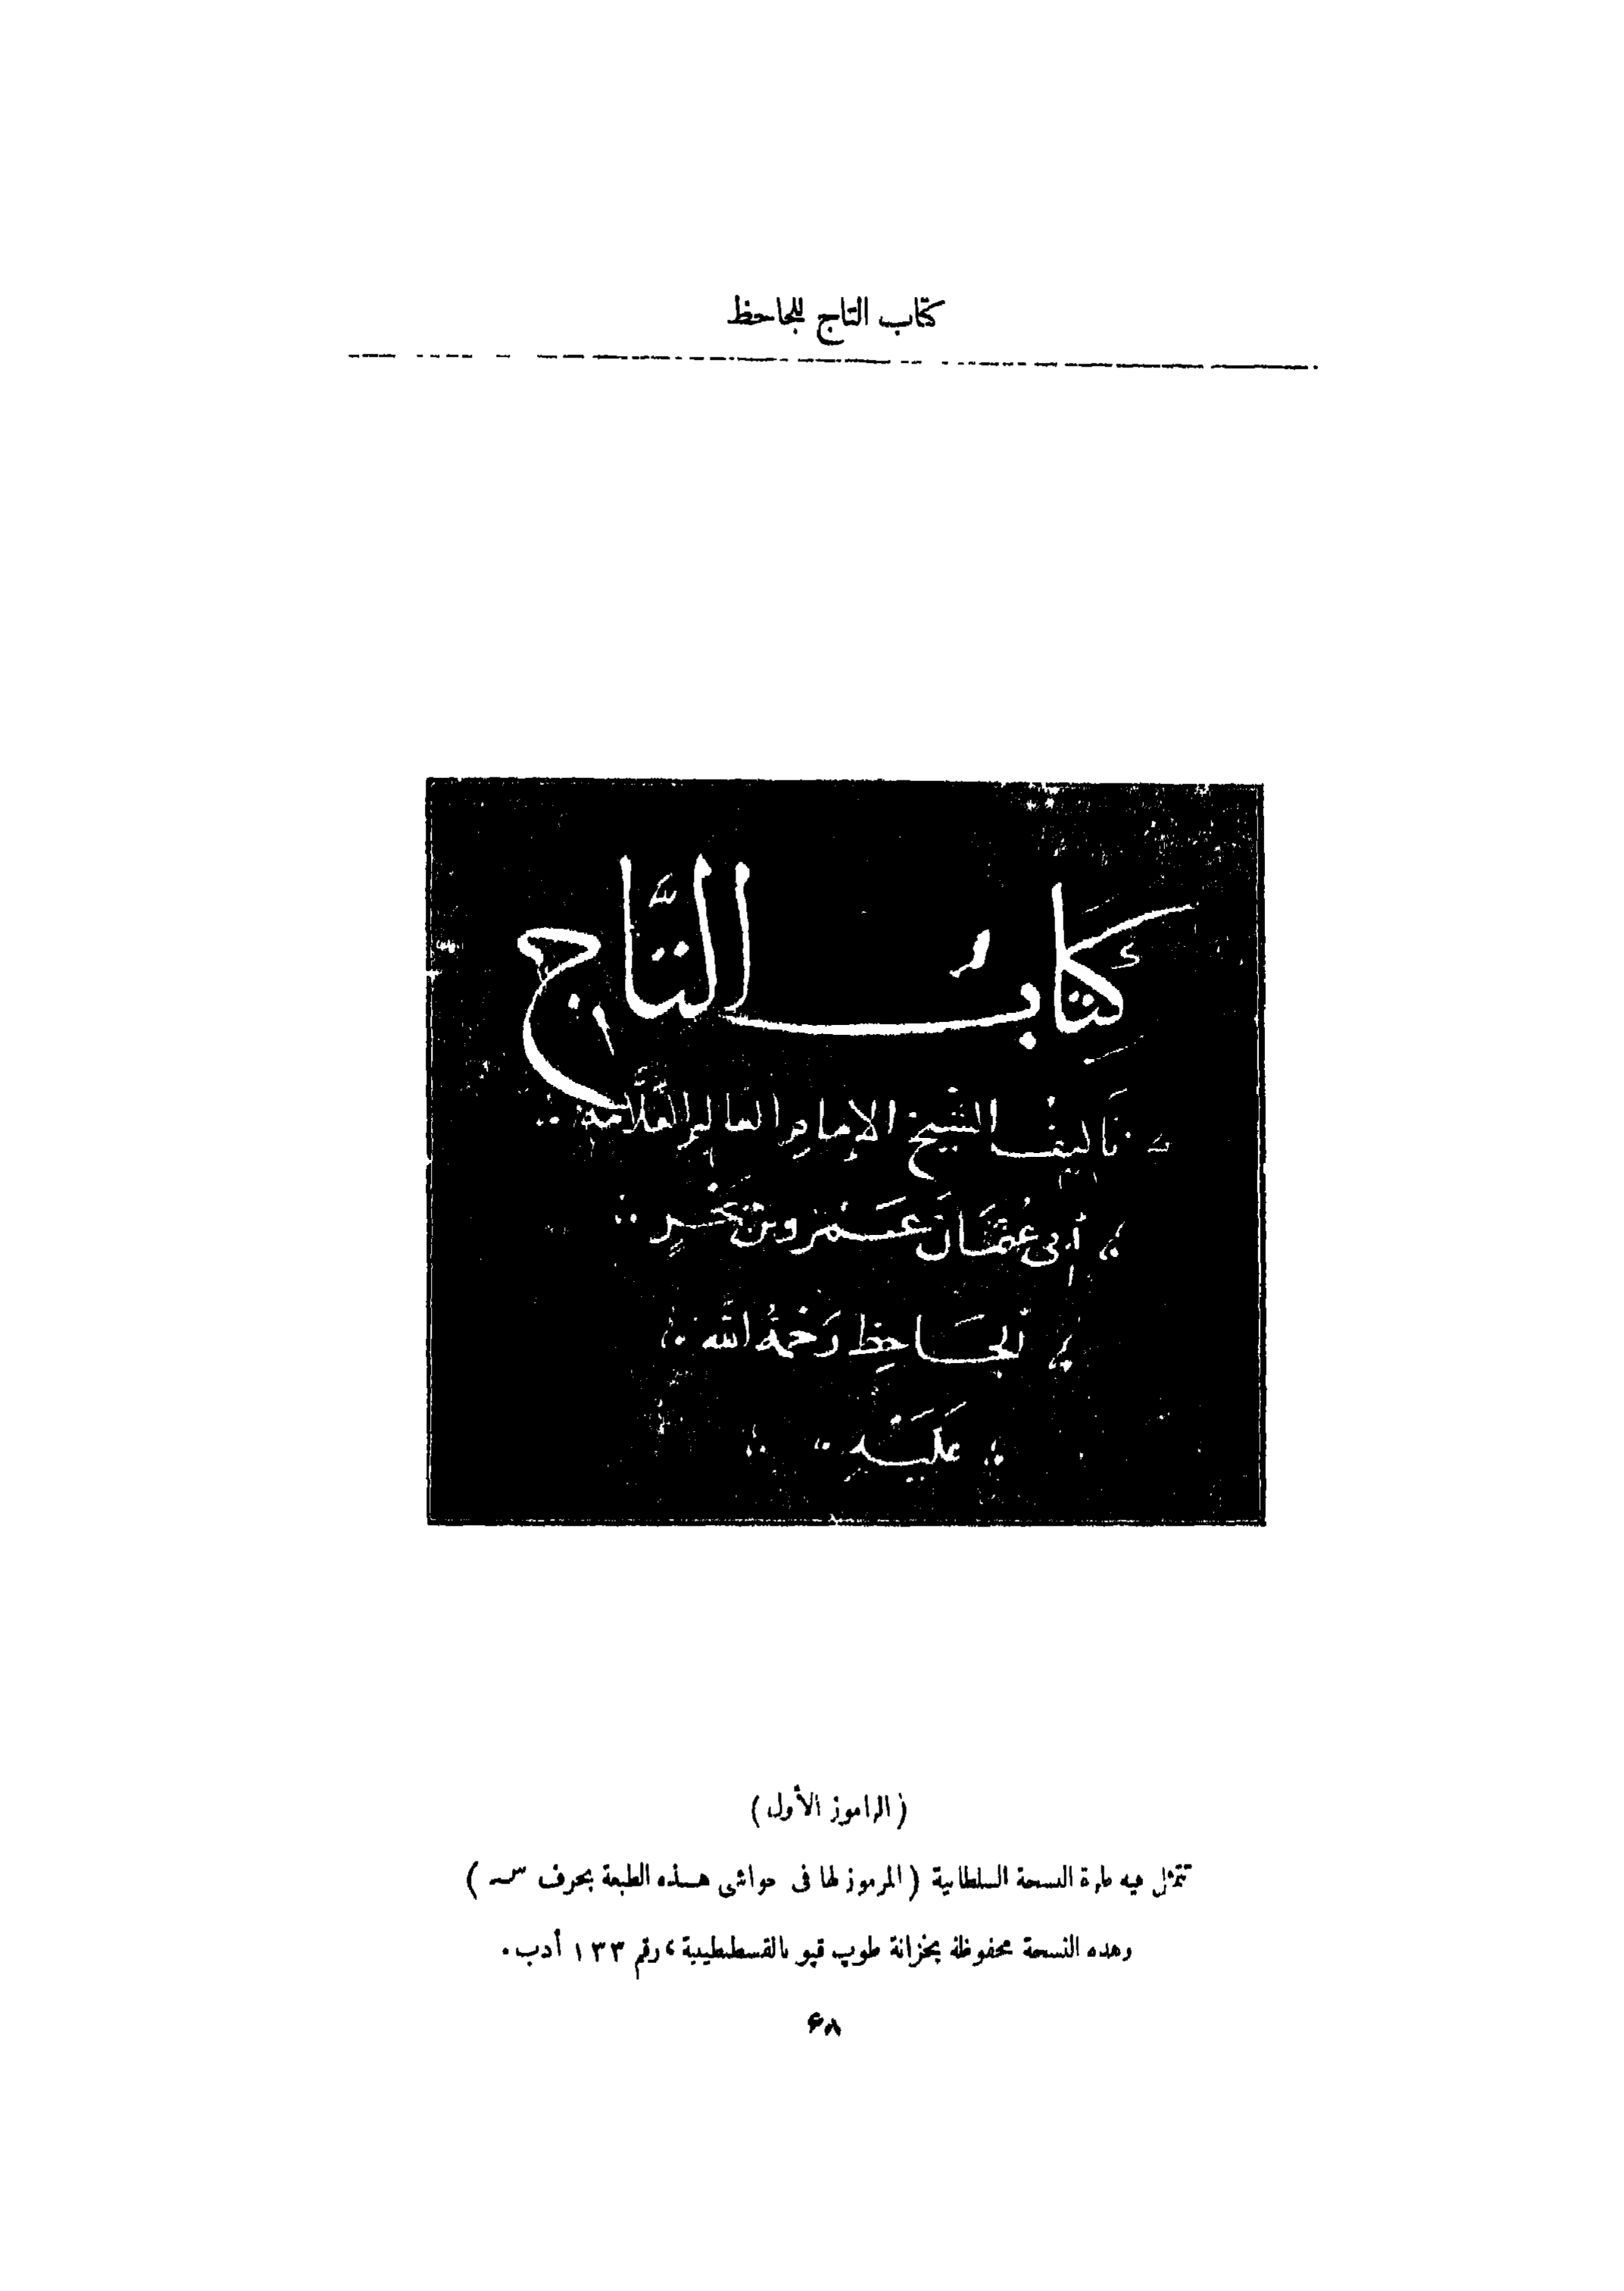 كتاب التاج للجاحظ
كِتَابُ التَّاجِ
تأليف الشيخ الإمام العالم العلّامة
أبي عُثمَان عَمرو بن بَحرٍ
الجَاحِظ رَحمَةُ الله
عَلَيْهِ
(الراموز الأول)
تتمثل فيه طرة النسخة السلطانية (المرموز لها فى حواشى هـذه الطبعة بحرف سـ)
وهذه النسخة محفوظة بخزانة طوپ قپو بالقسطنطينية، رقم ١٣٣ أدب.
٦٨